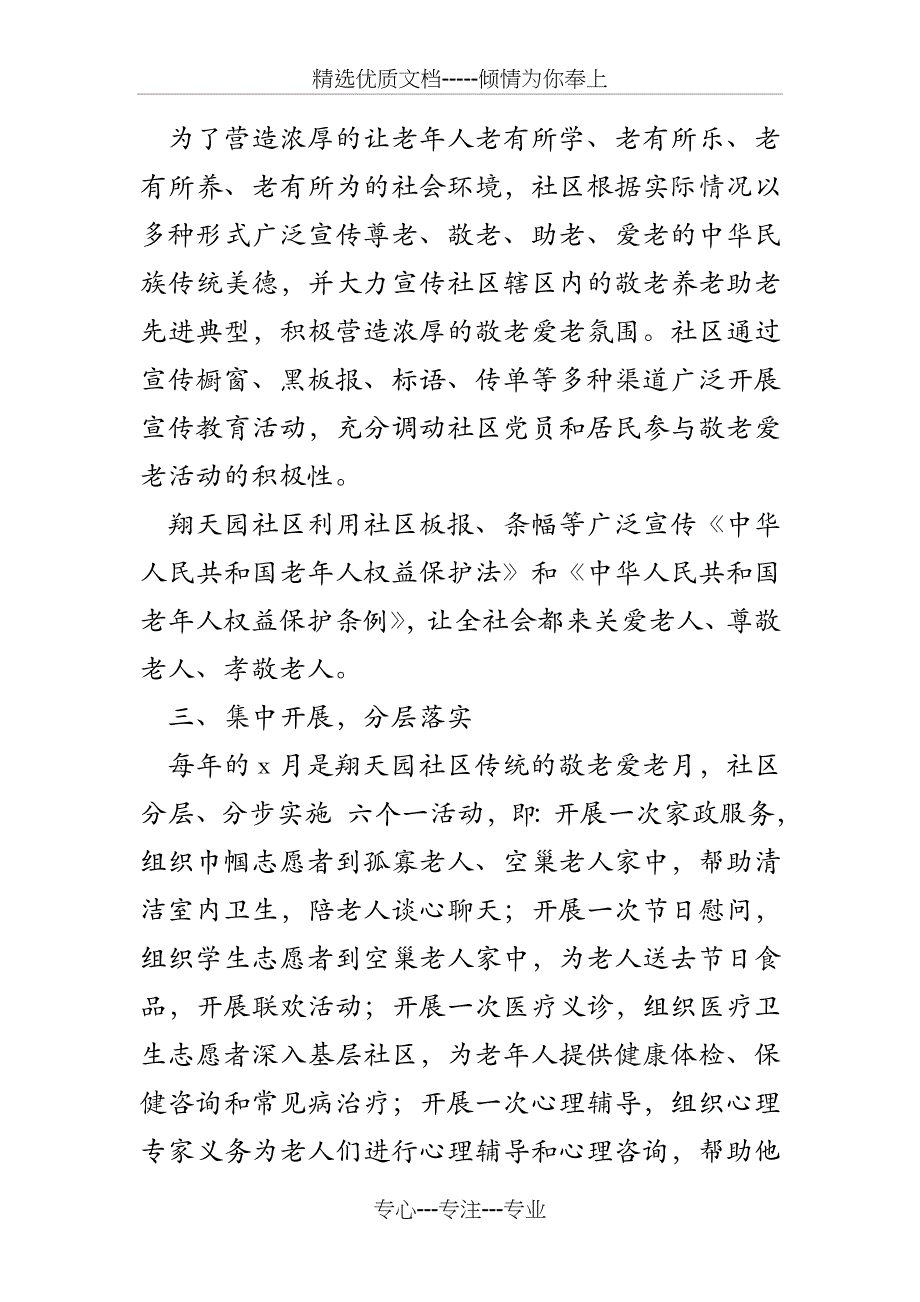 精选优质文档-----倾情为你奉上
为了营造浓厚的让老年人老有所学、老有所乐、老
有所养、老有所为的社会环境，社区根据实际情况以
多种形式广泛宣传尊老、敬老、助老、爱老的中华民
族传统美德，并大力宣传社区辖区内的敬老养老助老
先进典型，积极营造浓厚的敬老爱老氛围。社区通过
宣传橱窗、黑板报、标语、传单等多种渠道广泛开展
宣传教育活动，充分调动社区党员和居民参与敬老爱
老活动的积极性。
翔天园社区利用社区板报、条幅等广泛宣传《中华
人民共和国老年人权益保护法》和《中华人民共和国
老年人权益保护条例》，让全社会都来关爱老人、尊敬
老人、孝敬老人。
三、集中开展，分层落实
每年的 x 月是翔天园社区传统的敬老爱老月，社区
分层、分步实施 六个一活动，即：开展一次家政服务，
组织巾帼志愿者到孤寡老人、空巢老人家中，帮助清
洁室内卫生，陪老人谈心聊天；开展一次节日慰问，
组织学生志愿者到空巢老人家中，为老人送去节日食
品，开展联欢活动；开展一次医疗义诊，组织医疗卫
生志愿者深入基层社区，为老年人提供健康体检、保
健咨询和常见病治疗；开展一次心理辅导，组织心理
专家义务为老人们进行心理辅导和心理咨询，帮助他
专心---专注---专业